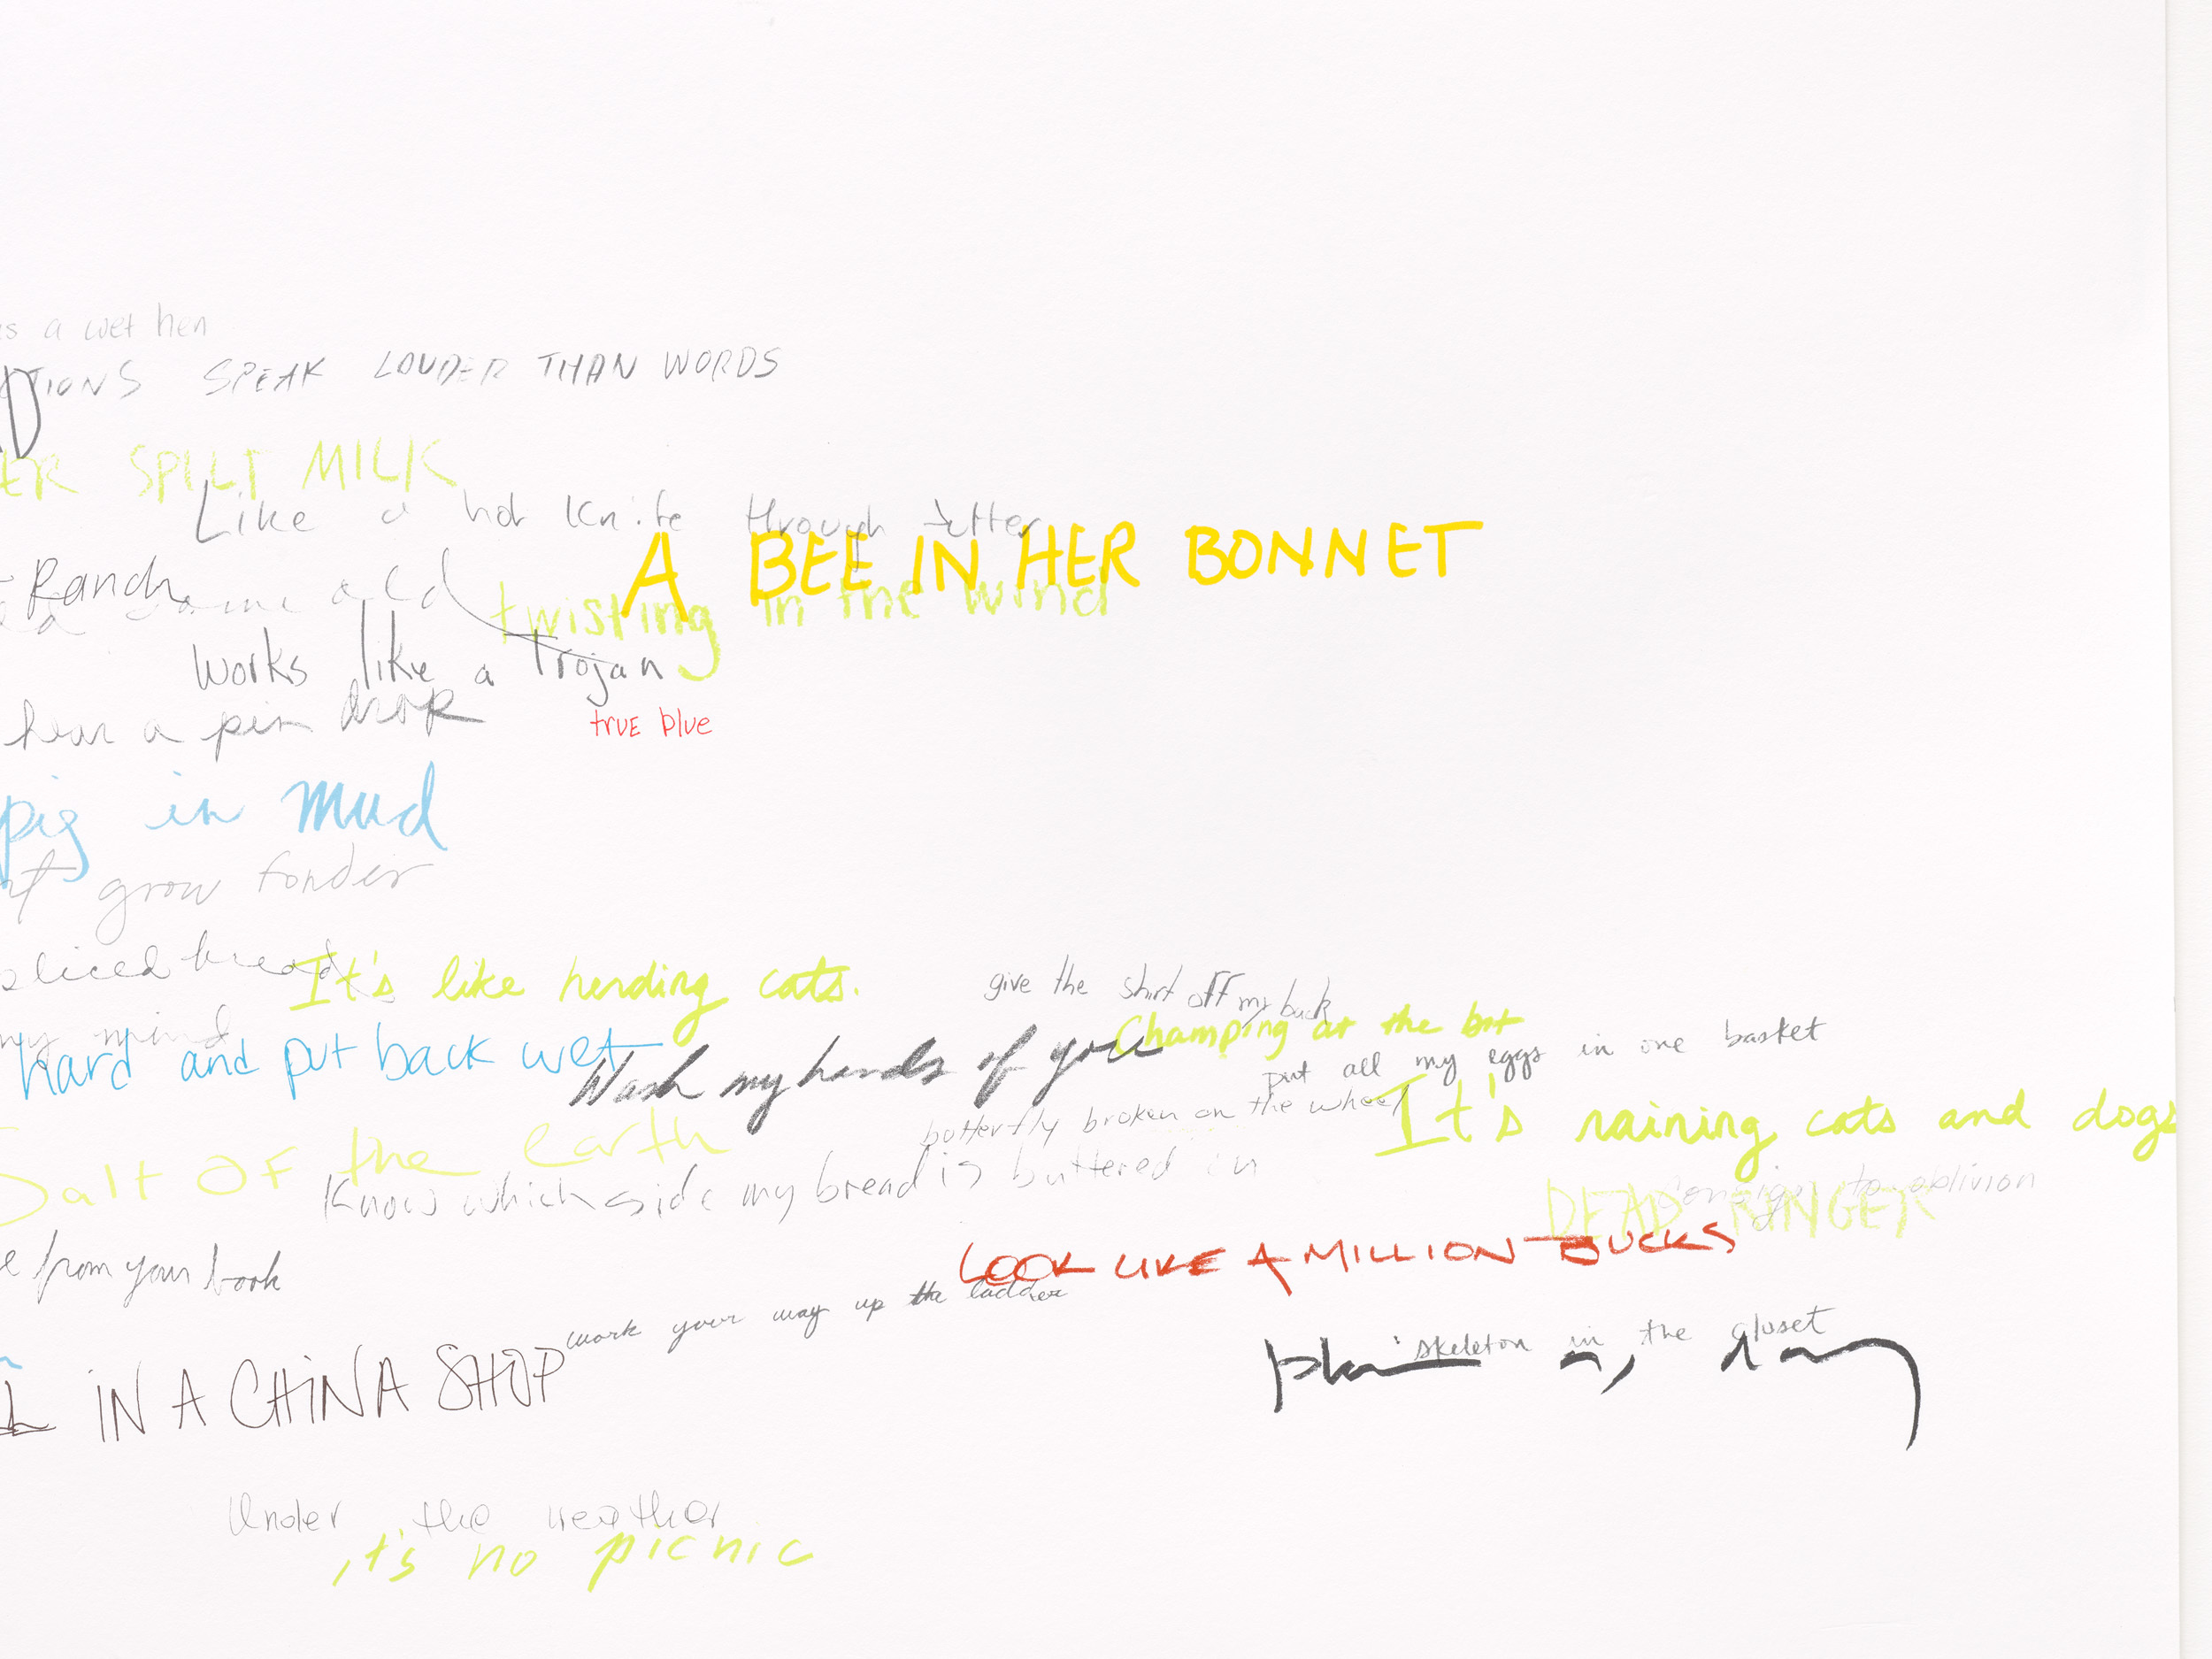 as a wet hen
ACTIONS SPEAK LOUDER THAN WORDS
ER SPILT MILK
Like a hot knife through butter
A BEE IN HER BONNET
Ranch
same old
twisting in the wind
works like a Trojan
hear a pin drop
true blue
pig in mud
grow fonder
sliced bread
It's like herding cats.
give the shirt off my back
my mind
Champing at the bit
hard and put back wet
Wash my hands of you
put all my eggs in one basket
butterfly broken on the wheel
It's raining cats and dogs
Salt OF the earth
Know which side my bread is buttered on
Consign to oblivion
DEAD RINGER
from your book
LOOK LIKE A MILLION BUCKS
work your way up the ladder
skeleton in the closet
IN A CHINA SHOP
Under the weather
it's no picnic